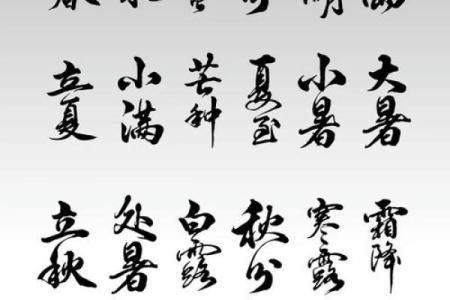 春 水 分 明 雨
立夏 小满 芒种 夏至 小暑 大暑
立秋 处暑 白露 秋分 寒露 霜降